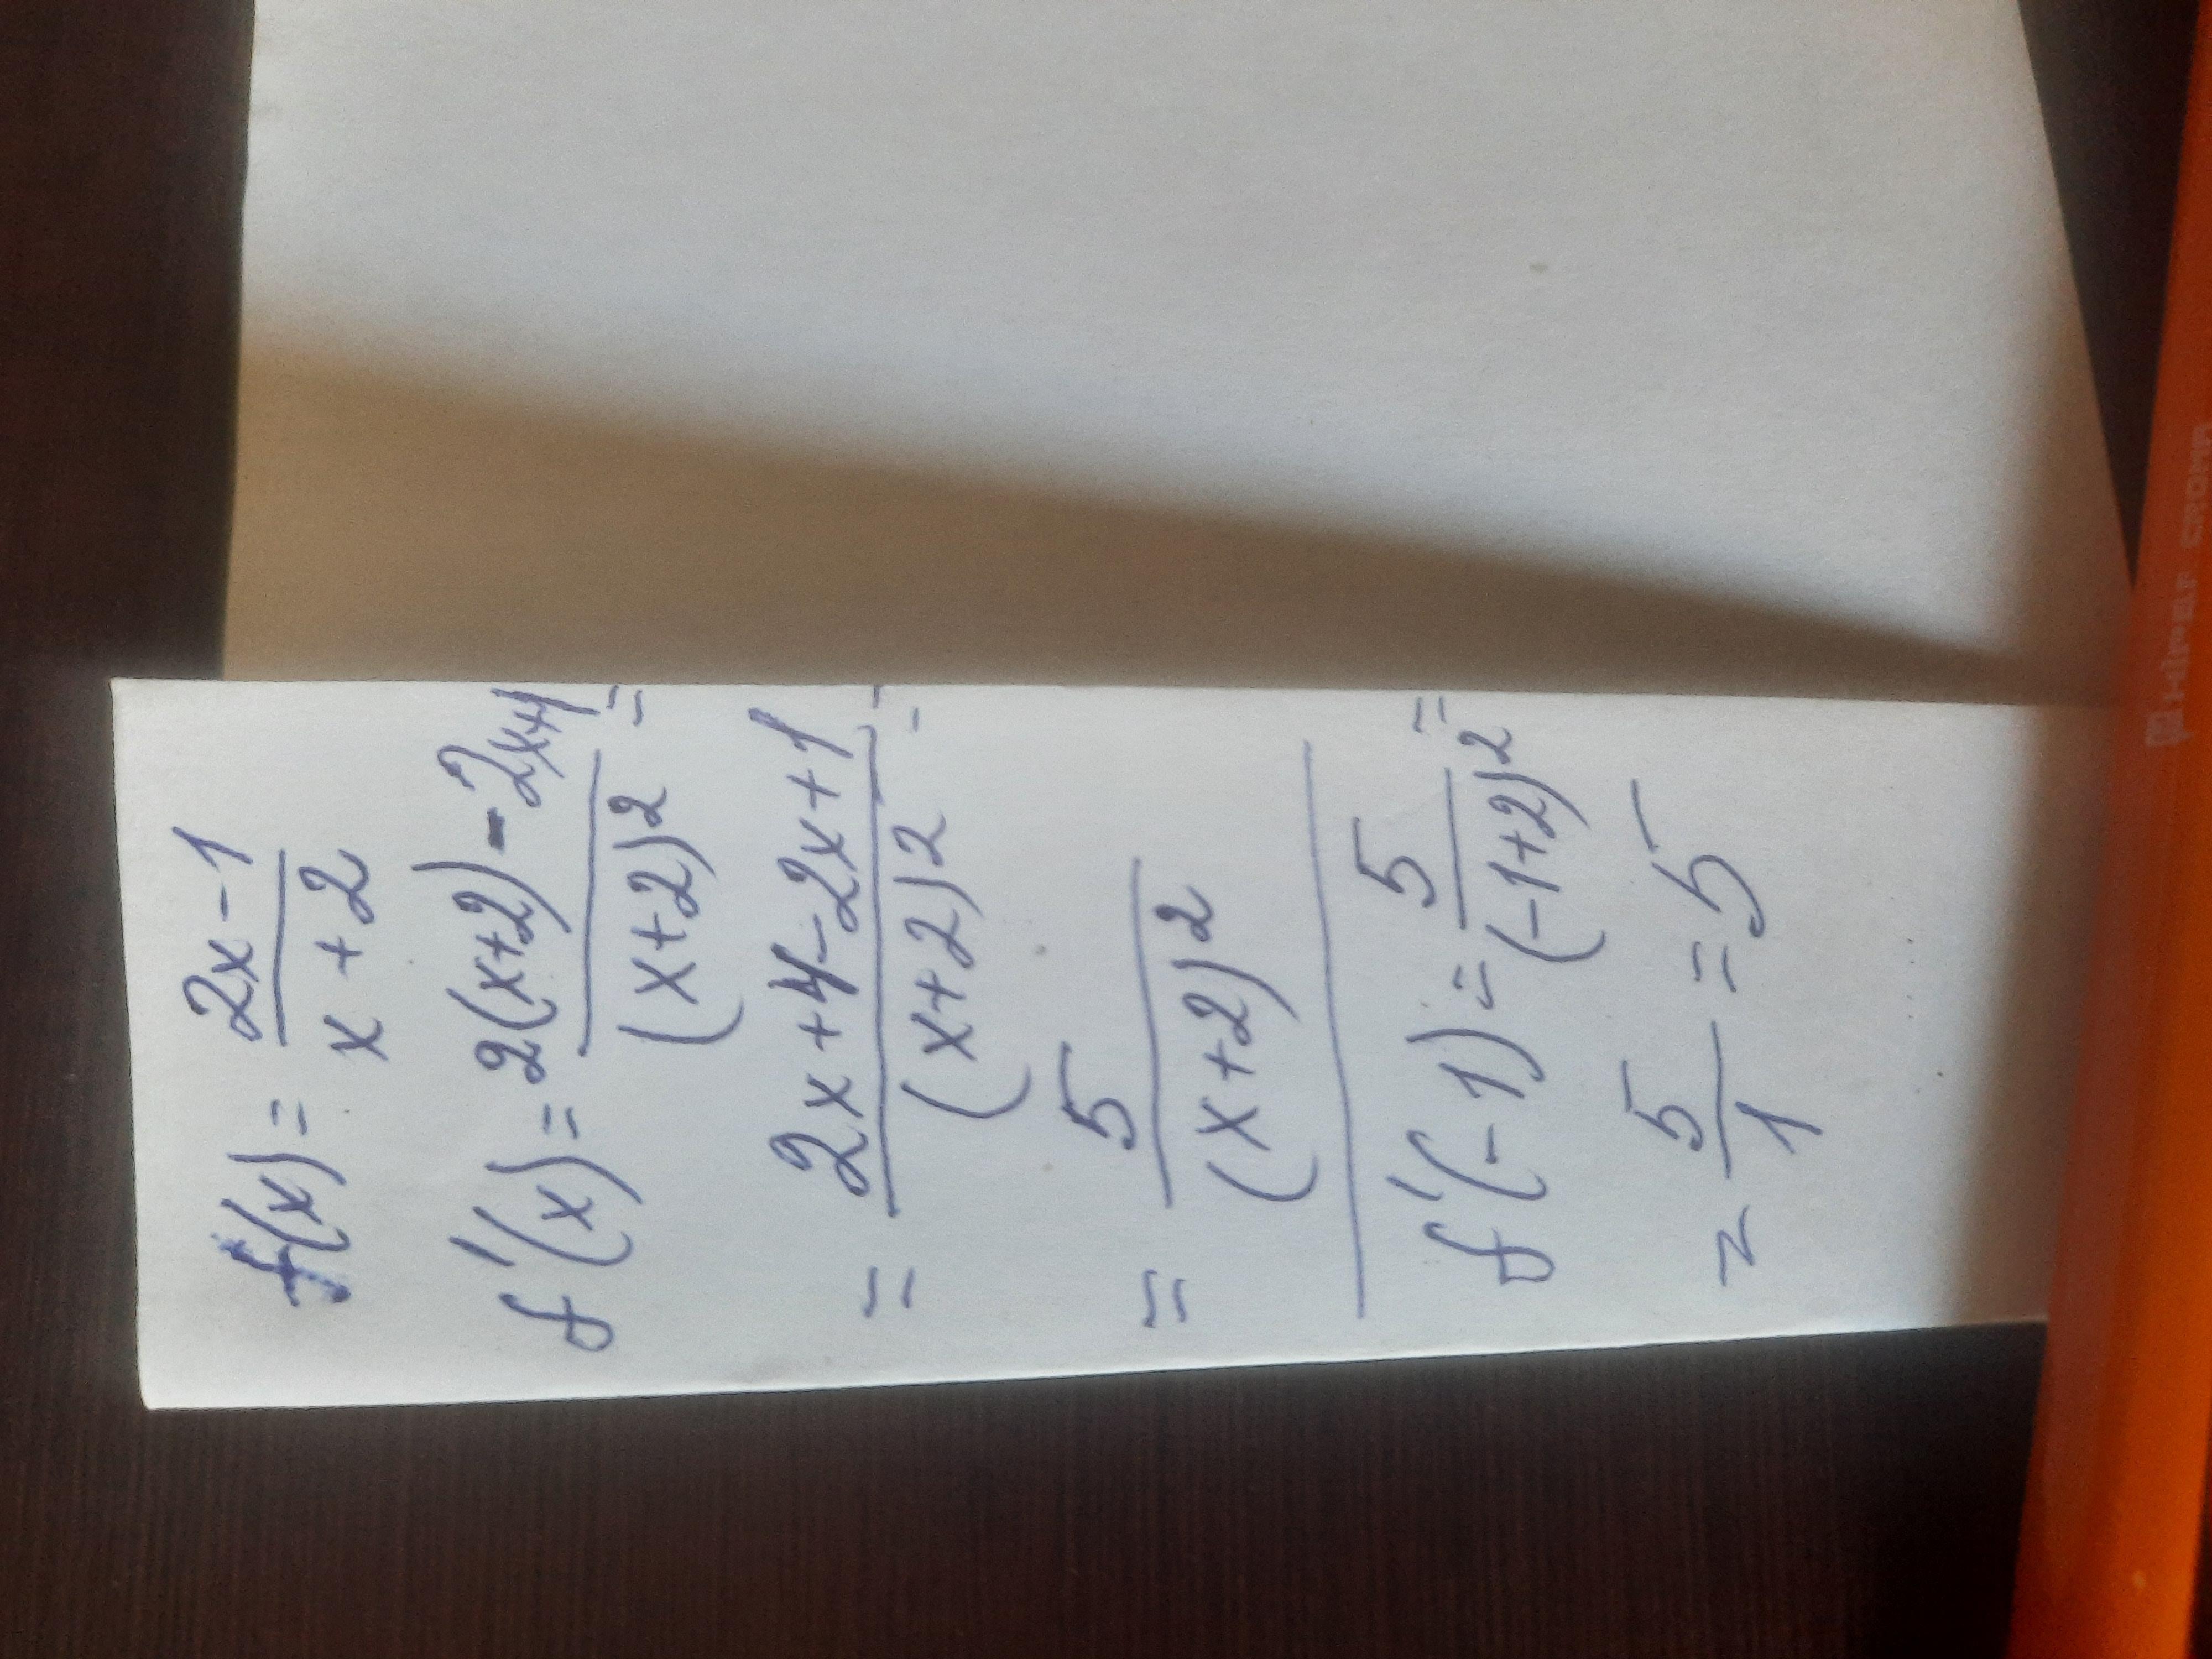 f(x) = \frac{2x-1}{x+2}
f'(x) = \frac{2(x+2)-2x+1}{(x+2)^2} =
= \frac{2x+4-2x+1}{(x+2)^2} =
= \frac{5}{(x+2)^2}
f'(-1) = \frac{5}{(-1+2)^2} =
= \frac{5}{1} = 5